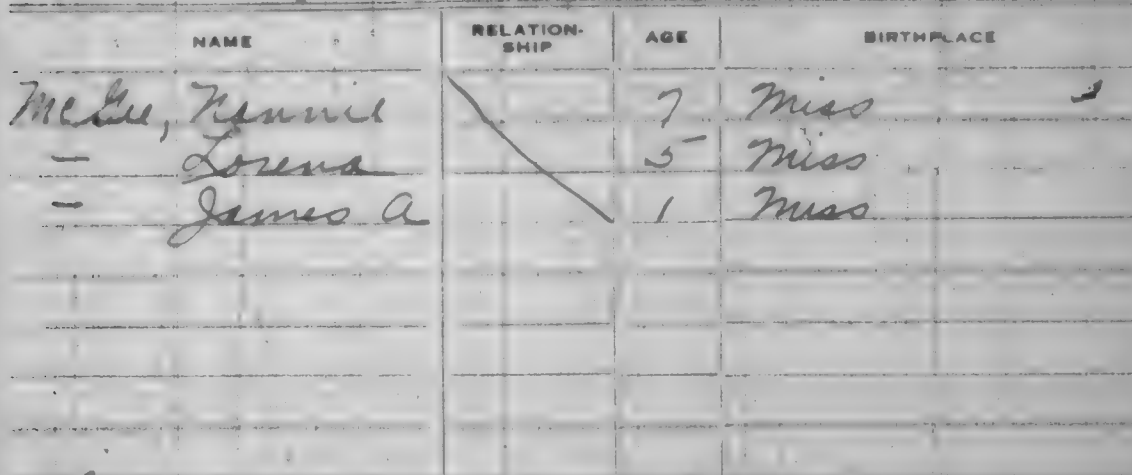 NAME RELATION-SHIP AGE BIRTHPLACE
McGee, Nannie 7 Miss
— Lorena 5 Miss
— James A 1 Miss